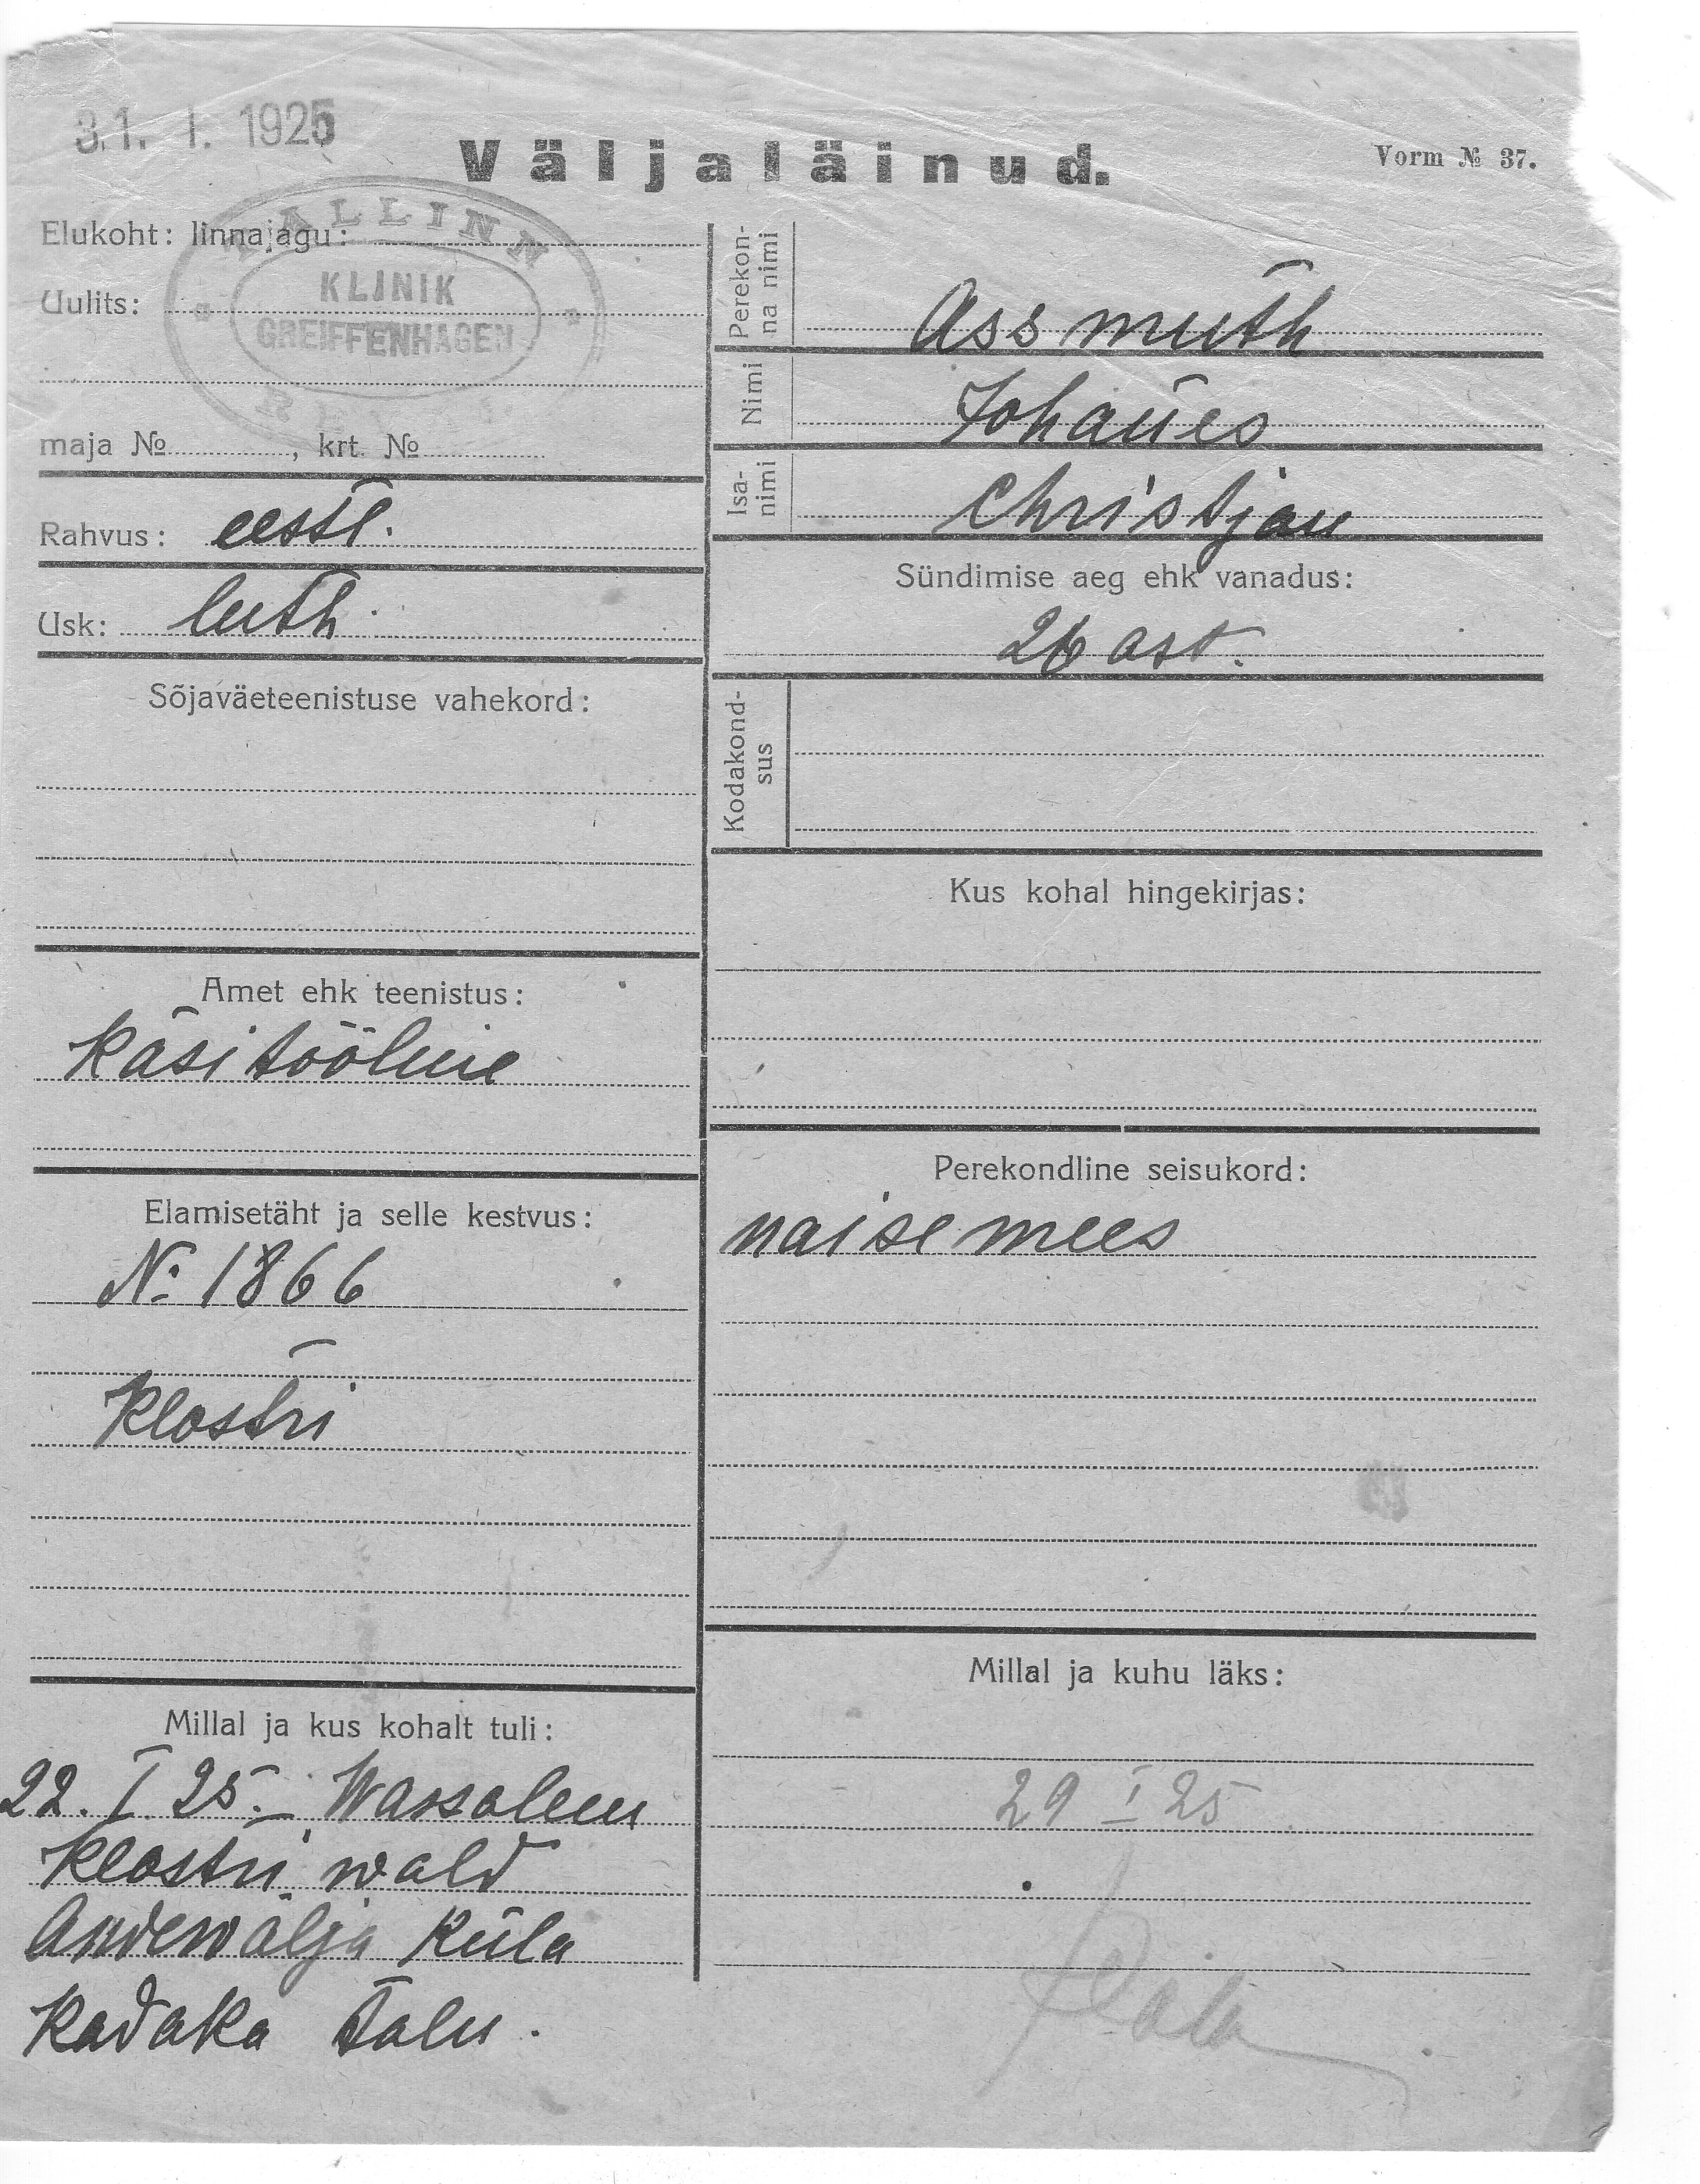 31. I. 1925
Väljaläinud.
Vorm № 37.
Elukoht: linnajagu:
TALLINN
KLINIK
GREIFFENHAGEN
Uulits:
maja № , krt. №
Rahvus: eestl.
Usk: luth.
Sõjaväeteenistuse vahekord:
Amet ehk teenistus:
Käsitööline
Elamisetäht ja selle kestvus:
№ 1866
Klostri
Millal ja kus kohalt tuli:
22. I. 25. – Wassalem
Klostri wald
Andewälja Küla
Kadaka talu.
Perekonna nimi
Assmuth
Nimi
Johannes
Isanimi
Christjan
Sündimise aeg ehk vanadus:
26 ast.
Kodakondsus
Kus kohal hingekirjas:
Perekondline seisukord:
naisemees
Millal ja kuhu läks:
29 I 25